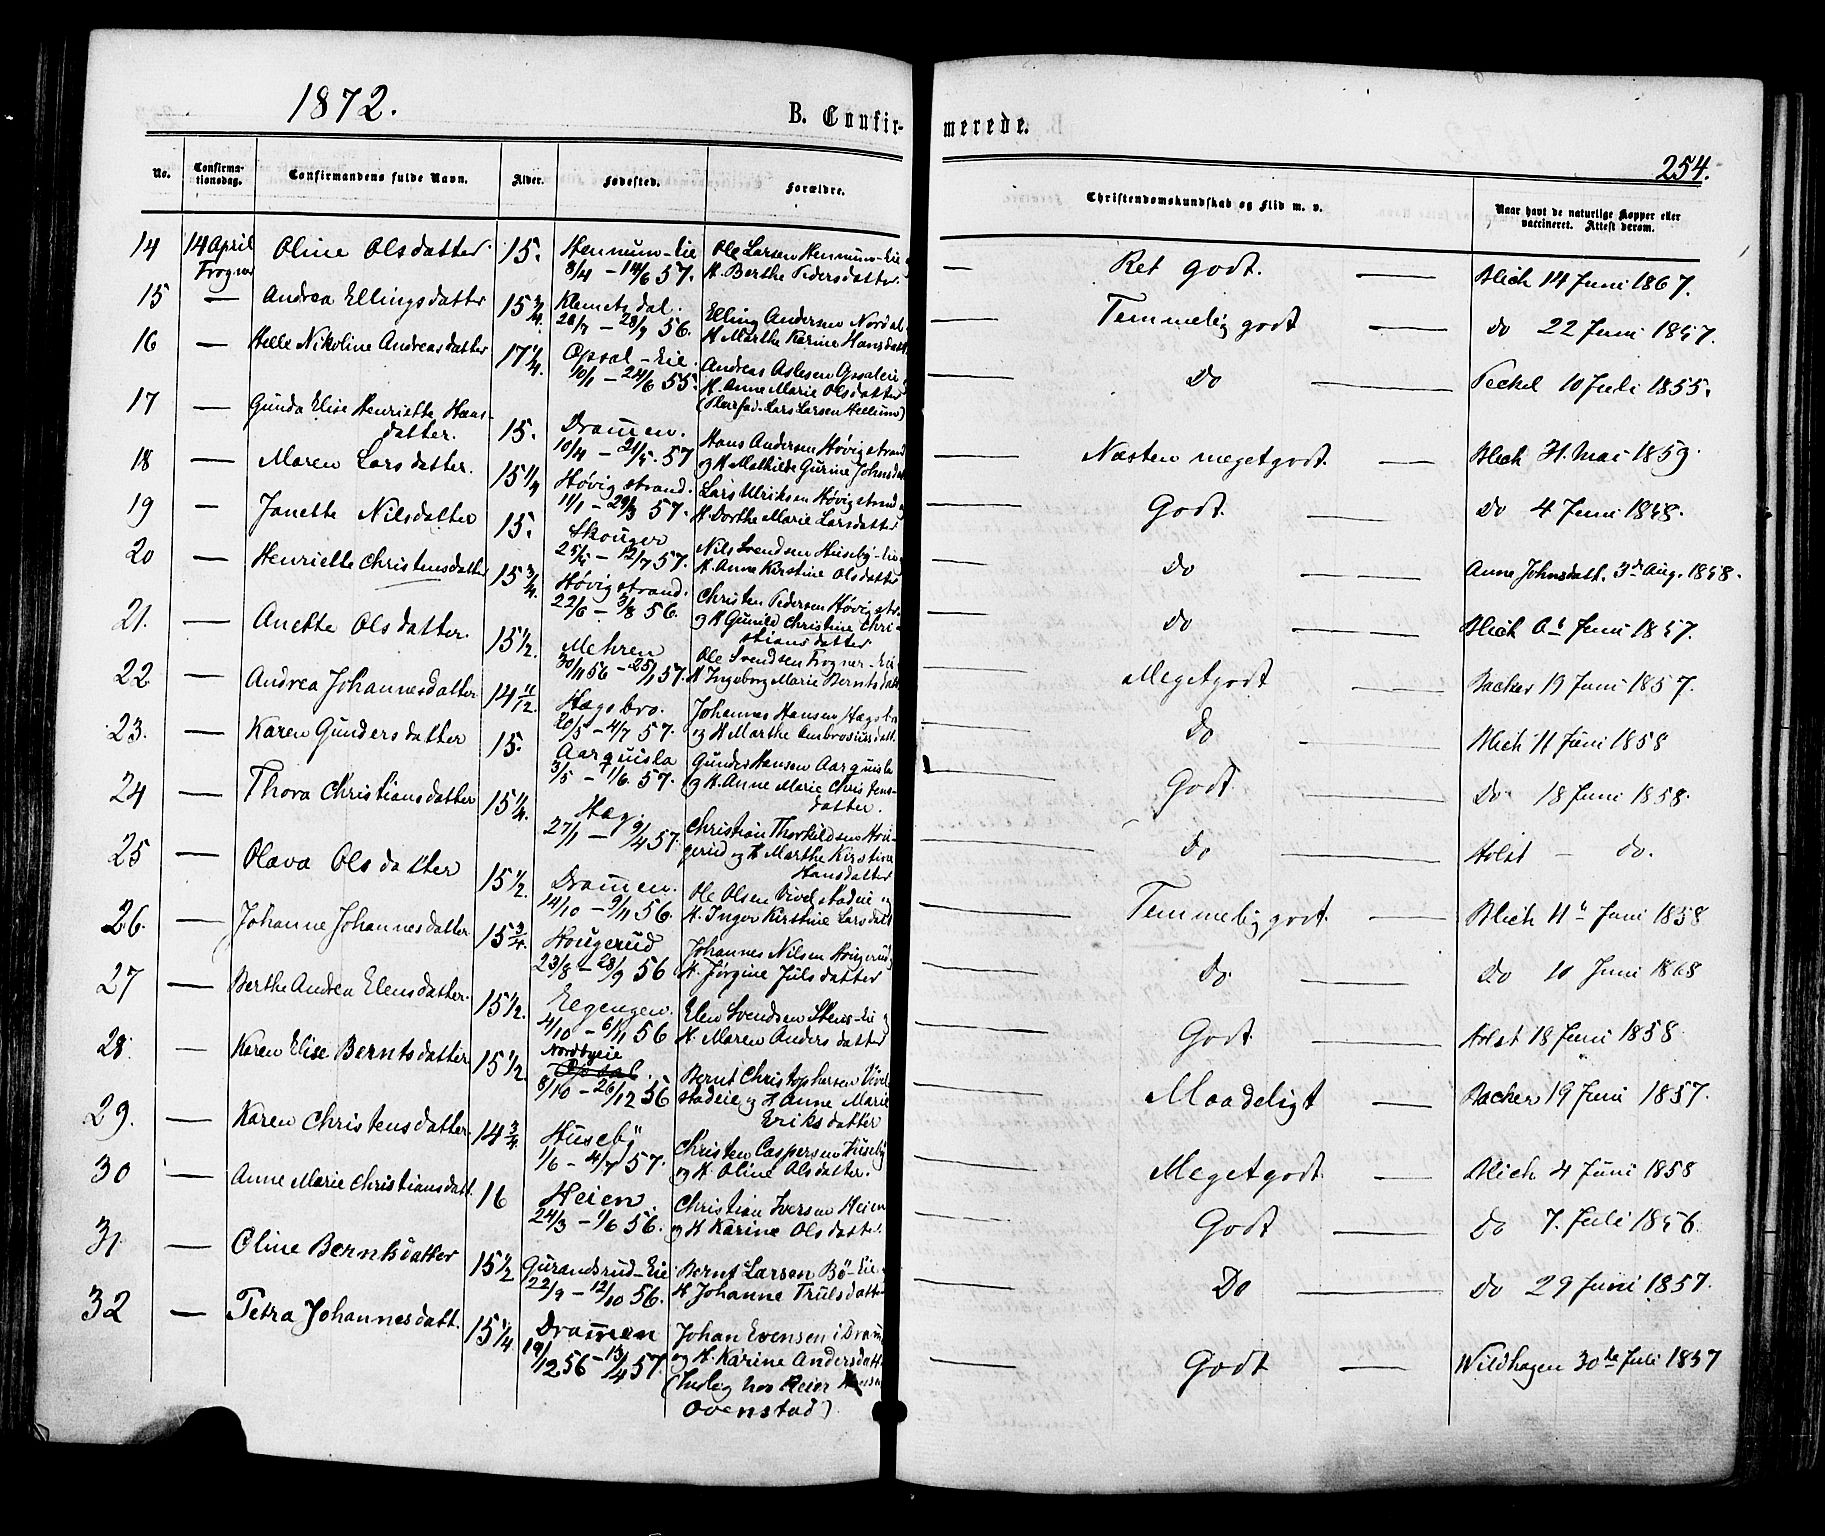 1872.
B. Confir-
merede.
254.
No.
Confirma-
tionsdag.
Confirmandens fulde Navn.
Alder.
Fødested.
Forældre.
Christendomskundskab og Flid m. v.
Naar havt de naturlige Kopper eller
vaccineret. Attest derom.
14 14 April Oline Olsdatter. 15. Hennum-Eie Ole Larsen Hennum-Eie
Frogner 8/4 - 14/6 57. H. Berthe Pedersdatter.
— Ret godt. — Blich 14 Juni 1867.
15 — Andrea Ellingsdatter 15 3/4 Klemetsdal. Elling Andersen Nordal
28/7 - 28/9 56. H Marthe Karine Hansdatt
— Temmelig godt — do 22 Juni 1857.
16 — Helle Nikoline Andreasdatter 17 1/4. Opsal-Eie. Andreas Aslesen Opsaleie
10/1 - 24/6 55. H. Anne Marie Olsdatter
(Pleiefad. Lars Larsen Hellum)
— Do — Peckel 10 Juli 1855.
17 — Gunda Elise Henriette Hans-
datter. 15. Dramen. Hans Andersen Høvigstrand
10/4 - 21/5. 57 og H Mathilde Gurine Johnsdat
— Næsten megetgodt. — Blich 31. Mai 1859.
18 — Maren Larsdatter. 15 1/4 Høvigstrand. Lars Ulriksen Høvigstrand
11/1 - 29/3 57. H. Dorthe Marie Larsdatter
— Godt. — Do 4 Juni 1858.
19 - Janette Nilsdatter 15. Skouger Nils Svendsen Huseby-Eie
25/5 - 12/7 57. H. Anne Kirstine Olsdatter
— Do — Anne Johnsdatt. 3d Aug. 1858.
20 — Henriette Christensdatter 15 3/4 Høvigstrand. Christen Pedersen Høvigstr.
22/6 - 3/8 56. og H Gunild Christine Chri-
stiansdatter
— Do — Blich Juni 1857.
21. — Anette Olsdatter. 15 1/2. Mehren Ole Svendsen Frogner-Eie
30/11 56 - 25/1 57. H Ingeborg Marie Berntsdatt.
— Megetgodt — Backer 19 Juni 1857.
22 — Andrea Johannesdatter 14 11/12. Hagsbro. Johannes Hansen Hagsbro
20/5 - 4/7 57. og H Marthe Ambrosiusdatt.
— Do — Blich 11 Juni 1858
23. — Karen Gundersdatter 15. Aarquisla Gunder Hansen Aarquisla
3/5 - 1/6. 57. og H. Anne Marie Christens-
datter.
— Godt. — Do 18 Juni 1858.
24 — Thora Christiansdatter 15 1/4. Hag. Christian Thorkildsen Hou-
27/1 - 9/4 57. gerud og H Marthe Kirstine
Hansdatter
— Do — Holst - do.
25 — Olava Olsdatter 15 1/2. Dramen. Ole Olsen Vivelstadeie og
14/10 - 9/11 56. H. Inger Kirstine Larsdatt
— Temmelig godt. — Blich 11te Juni 1858
26. — Johanne Johannesdatter 15 3/4. Hougerud Johannes Nilsen Hougerud
23/8 - 28/9 56 H. Jørgine Julsdatter
— Do. — Do 10 Juni 1868
27 — Berthe Andrea Elensdatter. 15 1/2. Eegengen. Elen Svendsen Stens-Eie og
4/10 - 6/11 56 H. Maren Andersdatter
— Godt. — Holst 18 Juni 1858
28. — Karen Elise Berntsdatter 15 1/2. Nordbyeie
Opsal. Bernt Christophersen Vivel-
8/10 - 26/12 56 stadeie og H Anne Marie
Eriksdatter
— Maadeligt — Backer 19 Juni 1857.
29. — Karen Christensdatter 14 3/4 Huseby Christen Caspersen Huseby
1/6 - 4/7 57. og H. Oline Olsdatter.
— Megetgodt. — Blich 4 Juni 1858
30 — Anne Marie Christiansdatt. 16 Heien. Christian Iversen Heien
24/3 - 1/6 56. og H Karine Olsdatter
— Godt — Do 7. Juli 1856.
31 — Oline Berntsdatter 15 1/2 Gurandsrud-Eie Bernt Larsen Bø-Eie
22/9 - 12/10 56. H Johanne Trulsdatt-
— Do — Do 29 Juni 1857.
32 — Petra Johannesdatt. 15 1/4 Dramen Johan Evensen i Dram
19/12 56 - 13/4 57. og H. Karine Andersdatt.
(Indlig hos Reier Hansen
Ovenstad)
— Godt — Wildhagen 30te Juli 1857